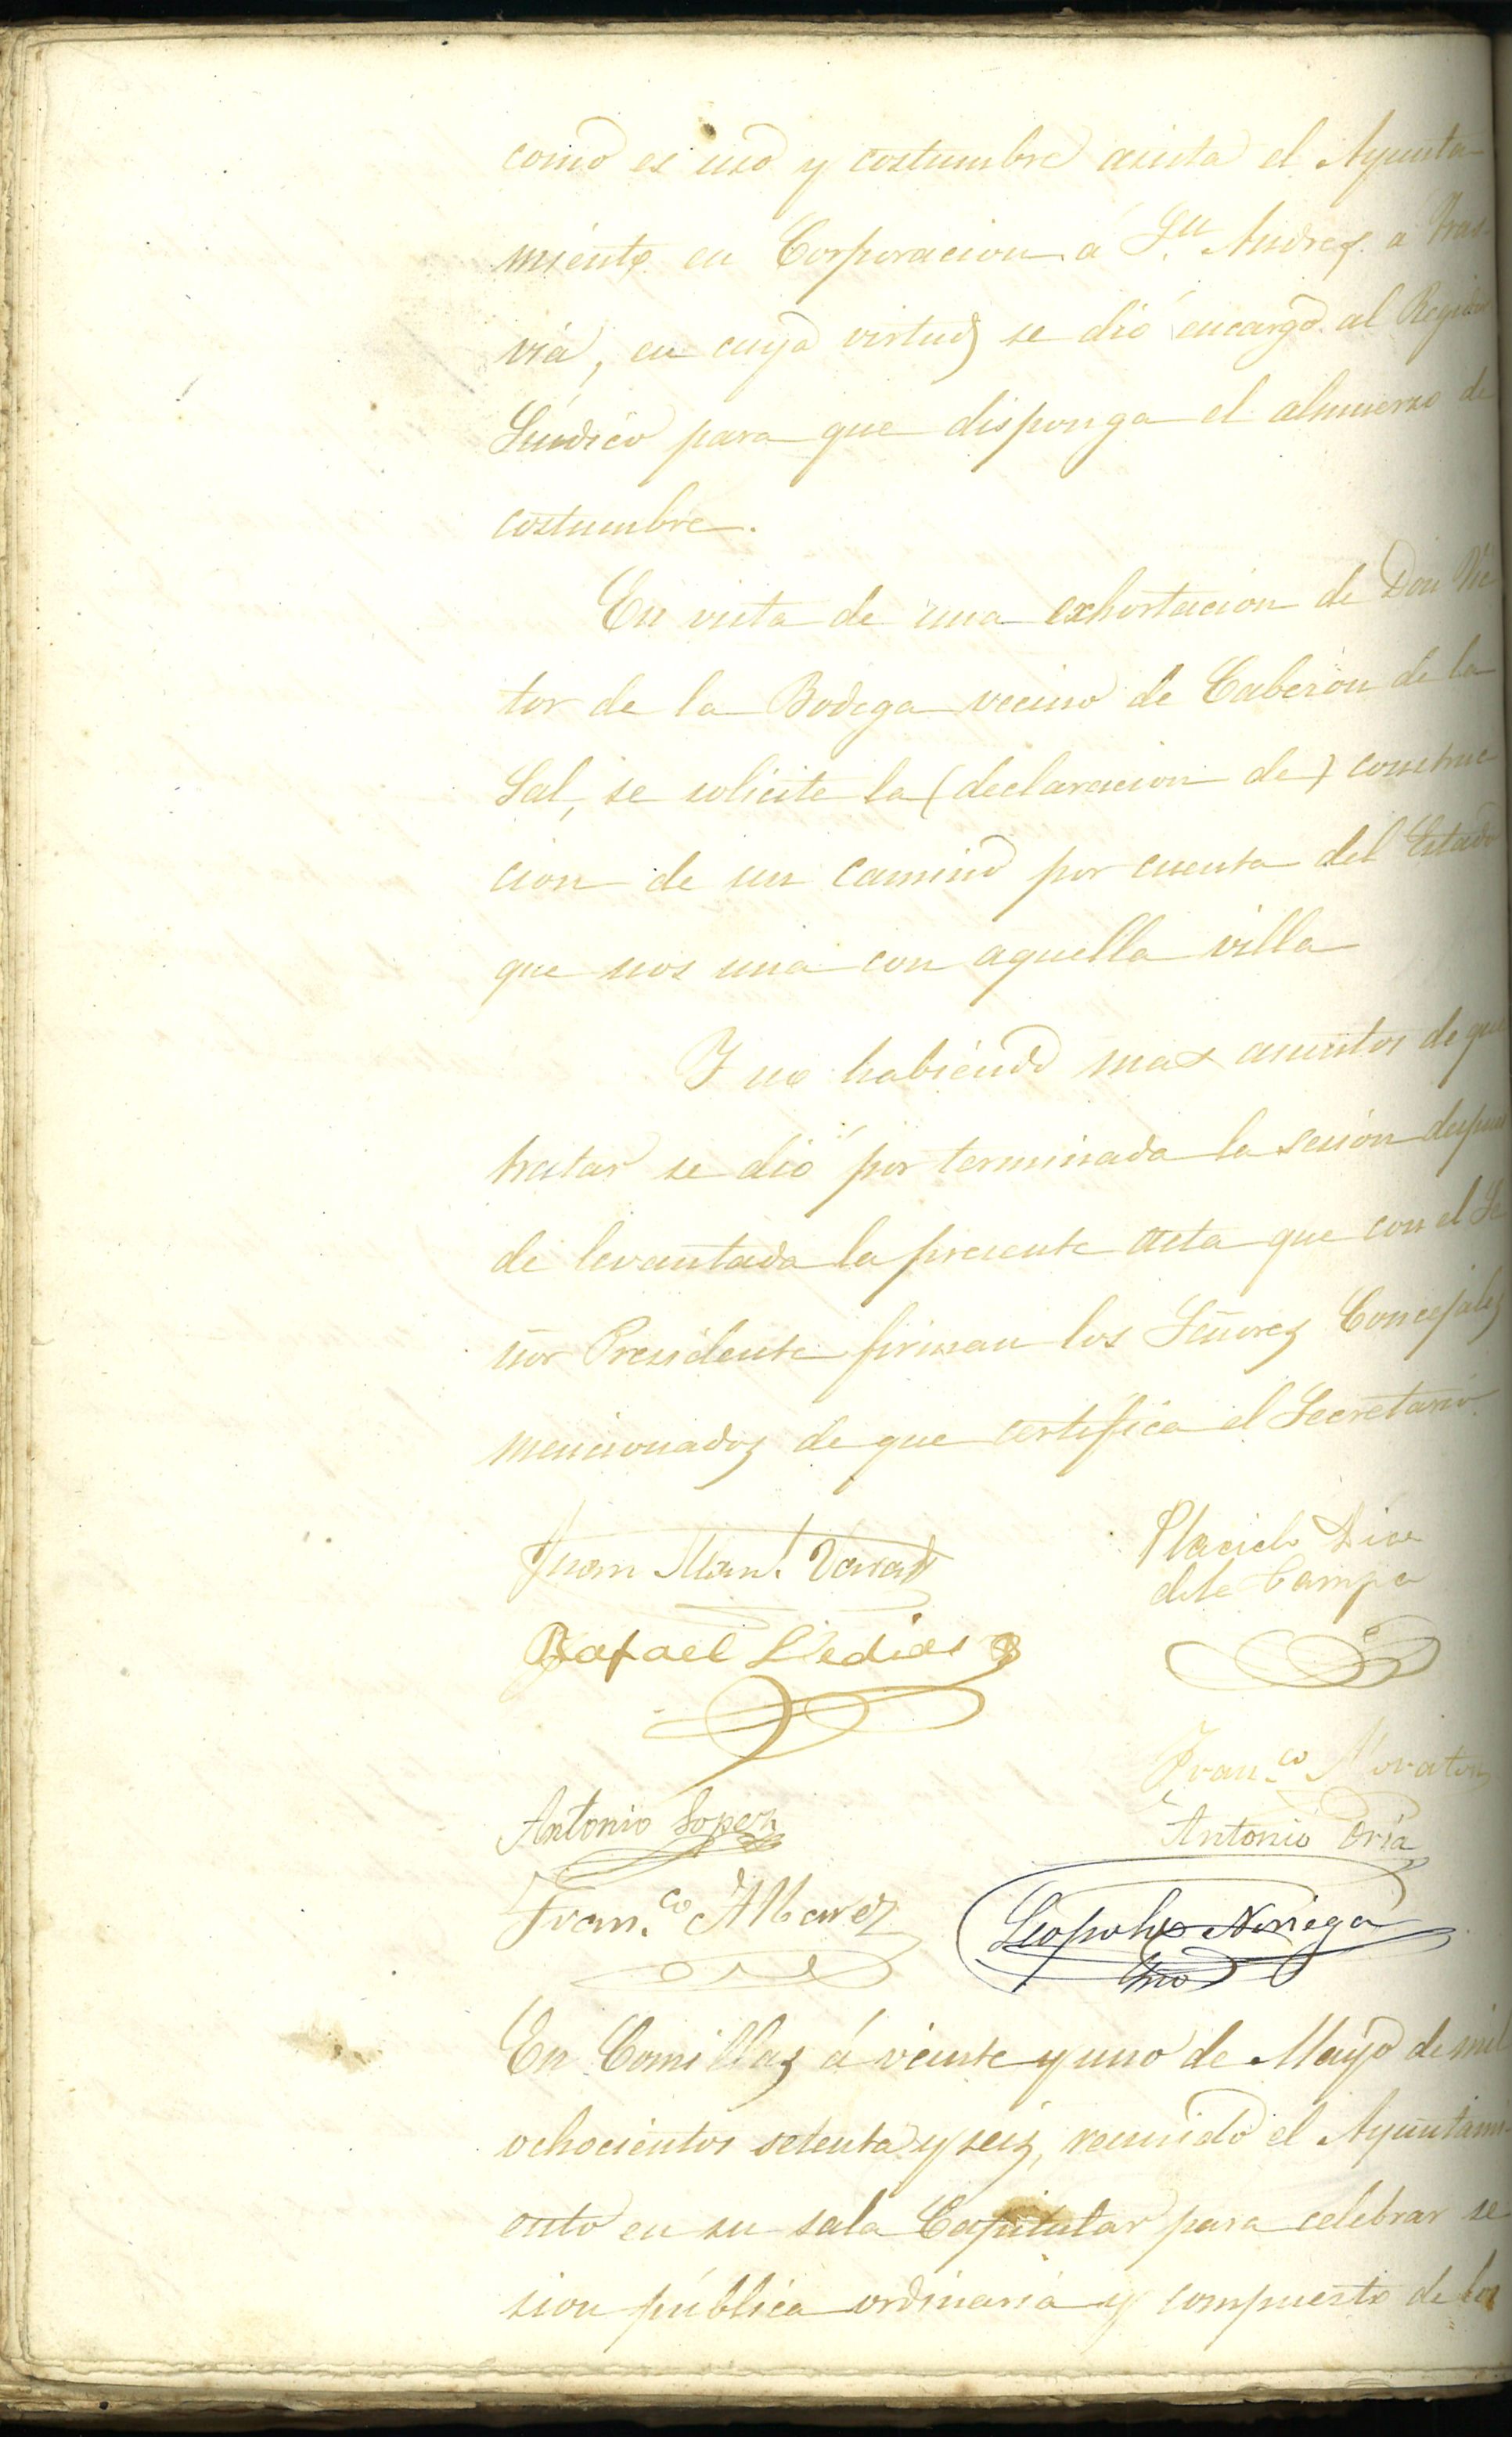 como es uso y costumbre asista el Ayunta
miento en Corporacion á Sn. Andres á Tras
via, en cuya virtud se dió encargo al Regidor
Síndico para que disponga el almuerzo de
costumbre.
En vista de una exhortacion de Don Vic
tor de la Bodega vecino de Cabezon de la
Sal, se solicite la (declaracion de) construc
cion de un camino por cuenta del Estado
que nos una con aquella villa
Y no habiendo mas asuntos de que
tratar se dió por terminada la sesión despues
de levantada la presente acta que con el Se
ñor Presidente firman los Señores Concejales
mencionados de que certifica el Secretario.
Juan Man.l
Placido Diaz
de la Campa
Rafael
Antonio Lopez
Fran.co
Antonio Oria
Fran.co Albarez
Leopoldo Noriega
Srio
En Comillas á veinte y uno de Mayo de mil
ochocientos setenta y seis, reunido el Ayuntami
ento en su sala Capitular para celebrar se
sion pública ordinaria y compuesto de los